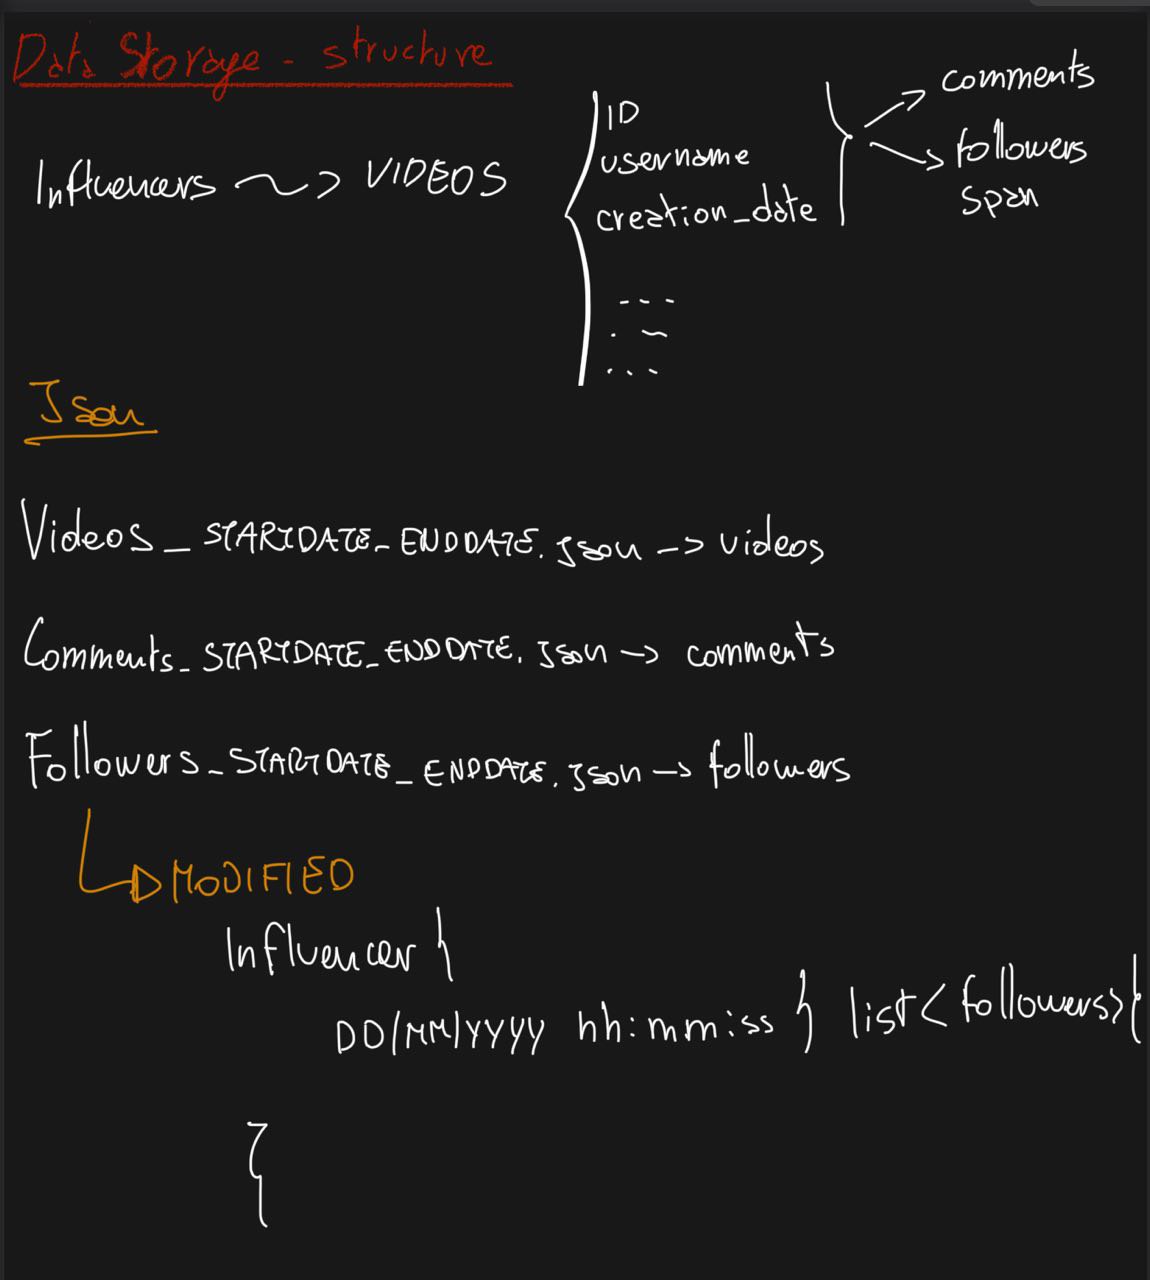 Data Storage - structure
Influencers ~> VIDEOS
ID
username
creation_date
comments
followers
span
Json
Videos_STARTDATE_ENDDATE.Json -> videos
Comments_STARTDATE_ENDDATE.Json -> comments
Followers_STARTDATE_ENDDATE.Json -> followers
MODIFIED
Influencer {
DD/MM/YYYY hh:mm:ss } list<followers>{
}